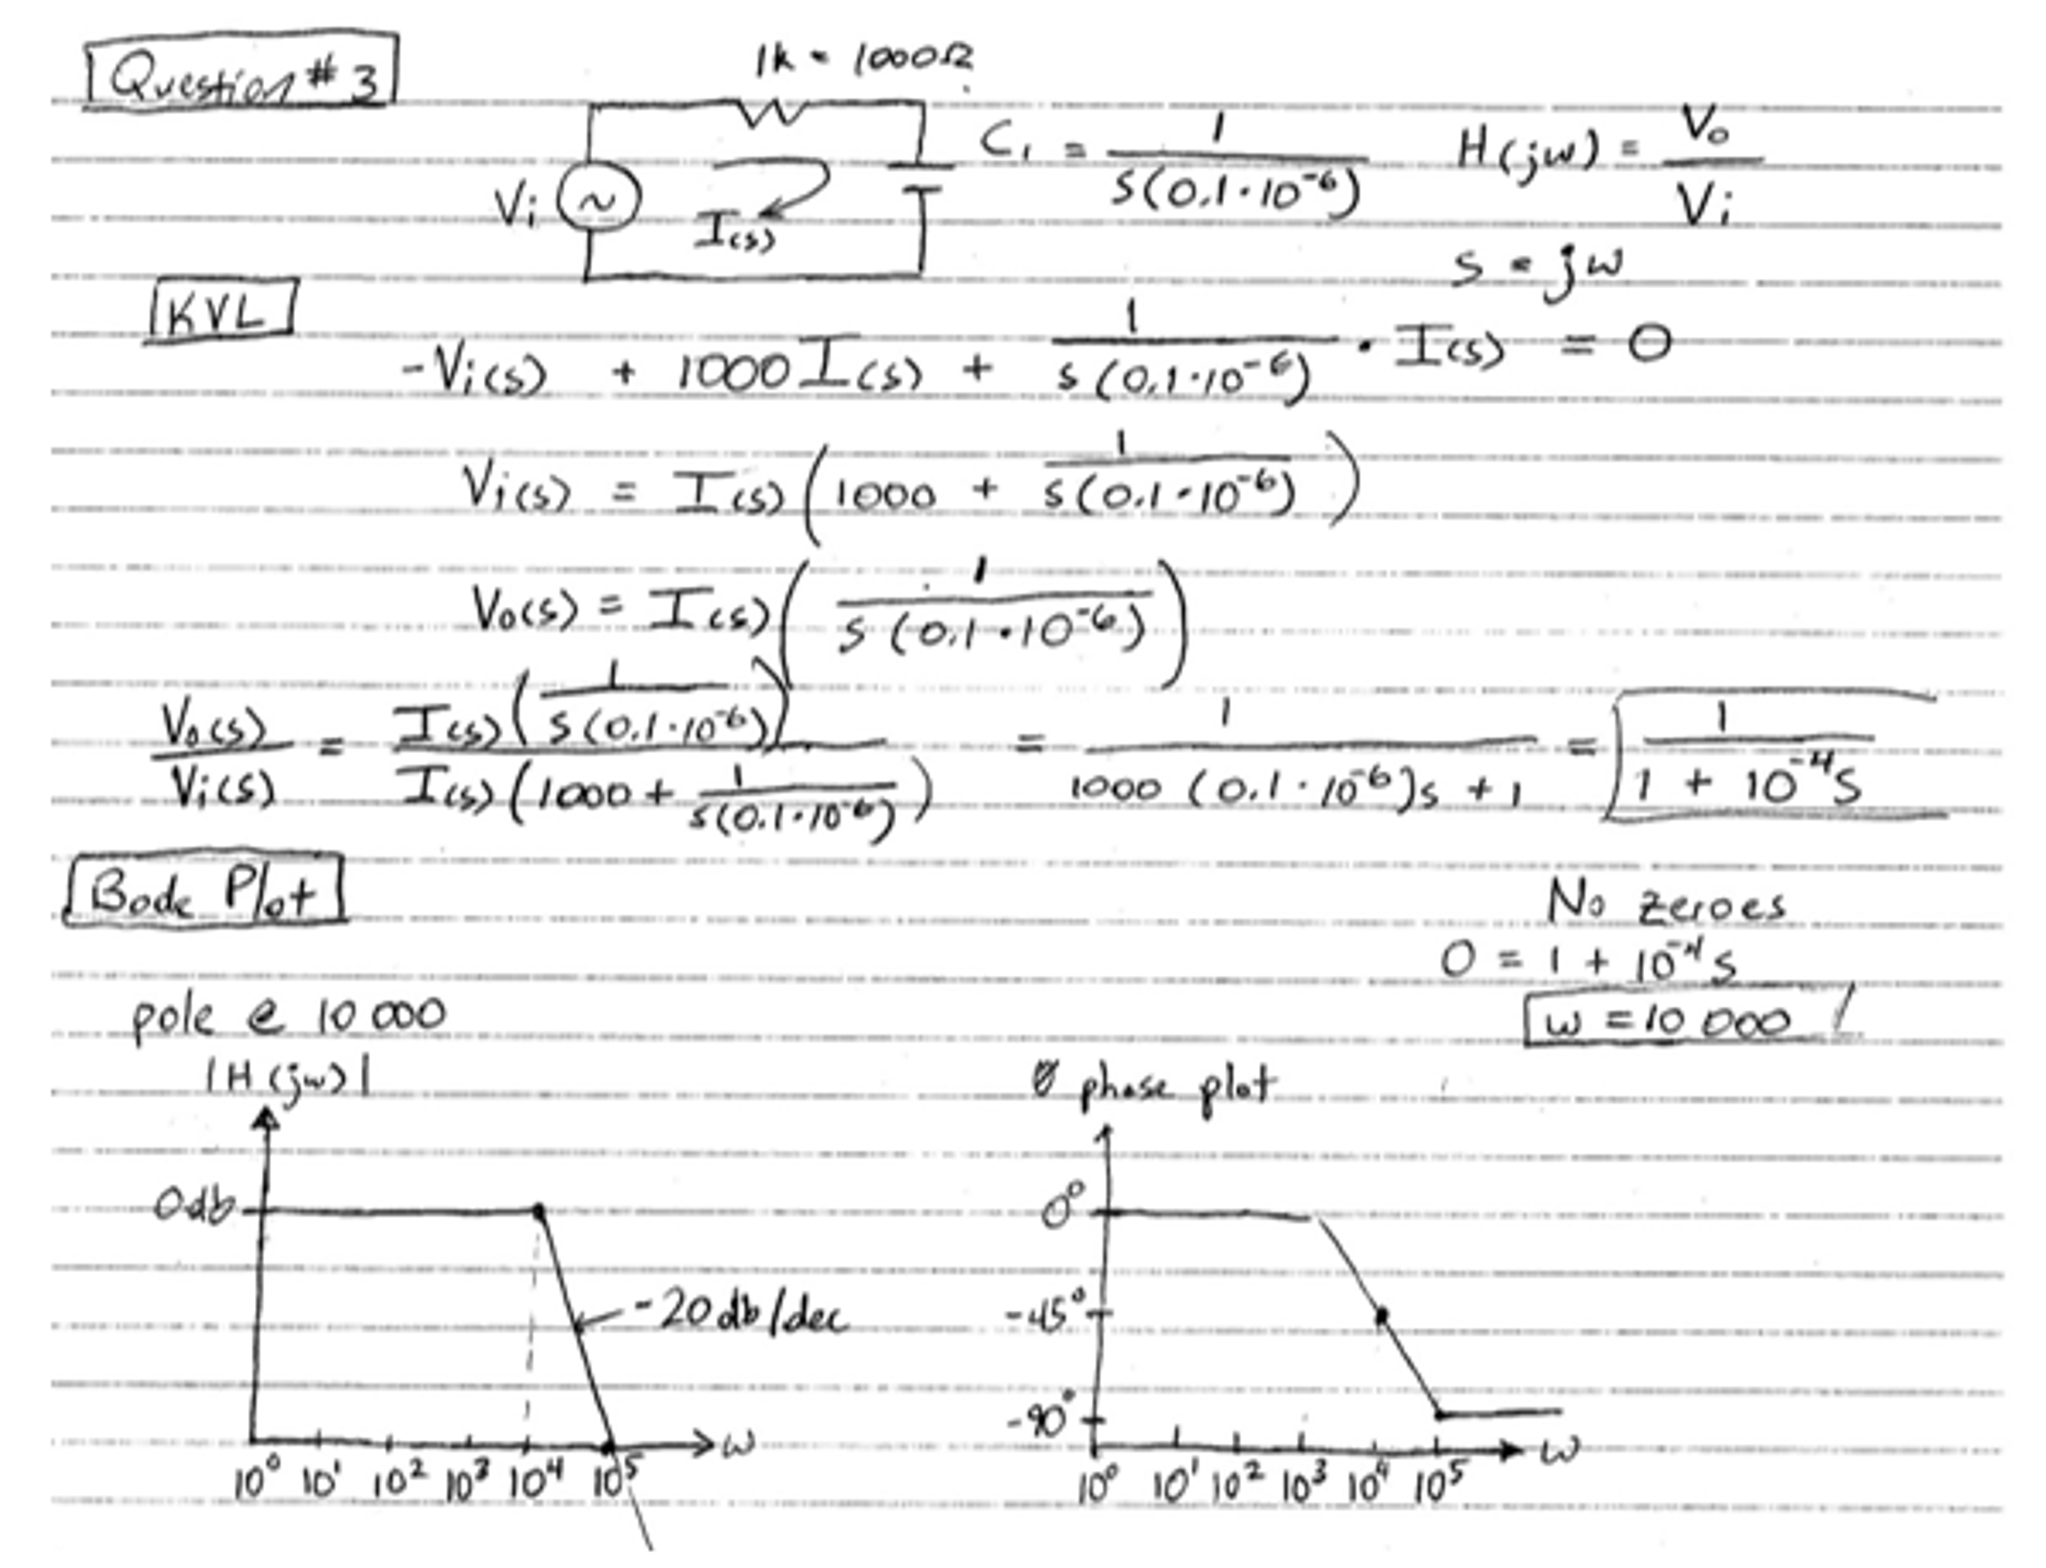 Question # 3
1k = 1000Ω
Vi
I(s)
C₁ = 1 / s(0.1·10⁻⁶)
H(jw) = Vo / Vi
s = jw
KVL
-Vi(s) + 1000 I(s) + 1 / s(0.1·10⁻⁶) · I(s) = 0
Vi(s) = I(s) (1000 + 1 / s(0.1·10⁻⁶))
Vo(s) = I(s) (1 / s(0.1·10⁻⁶))
Vo(s) / Vi(s) = I(s) (1 / s(0.1·10⁻⁶)) / I(s) (1000 + 1 / s(0.1·10⁻⁶)) = 1 / 1000 (0.1·10⁻⁶)s + 1 = 1 / 1 + 10⁻⁴s
Bode Plot
No zeroes
0 = 1 + 10⁻⁴s
w = 10 000
pole @ 10 000
|H(jw)|
0db
-20db/dec
10⁰ 10¹ 10² 10³ 10⁴ 10⁵ w
phase plot
0°
-45°
-90°
10⁰ 10¹ 10² 10³ 10⁴ 10⁵ w